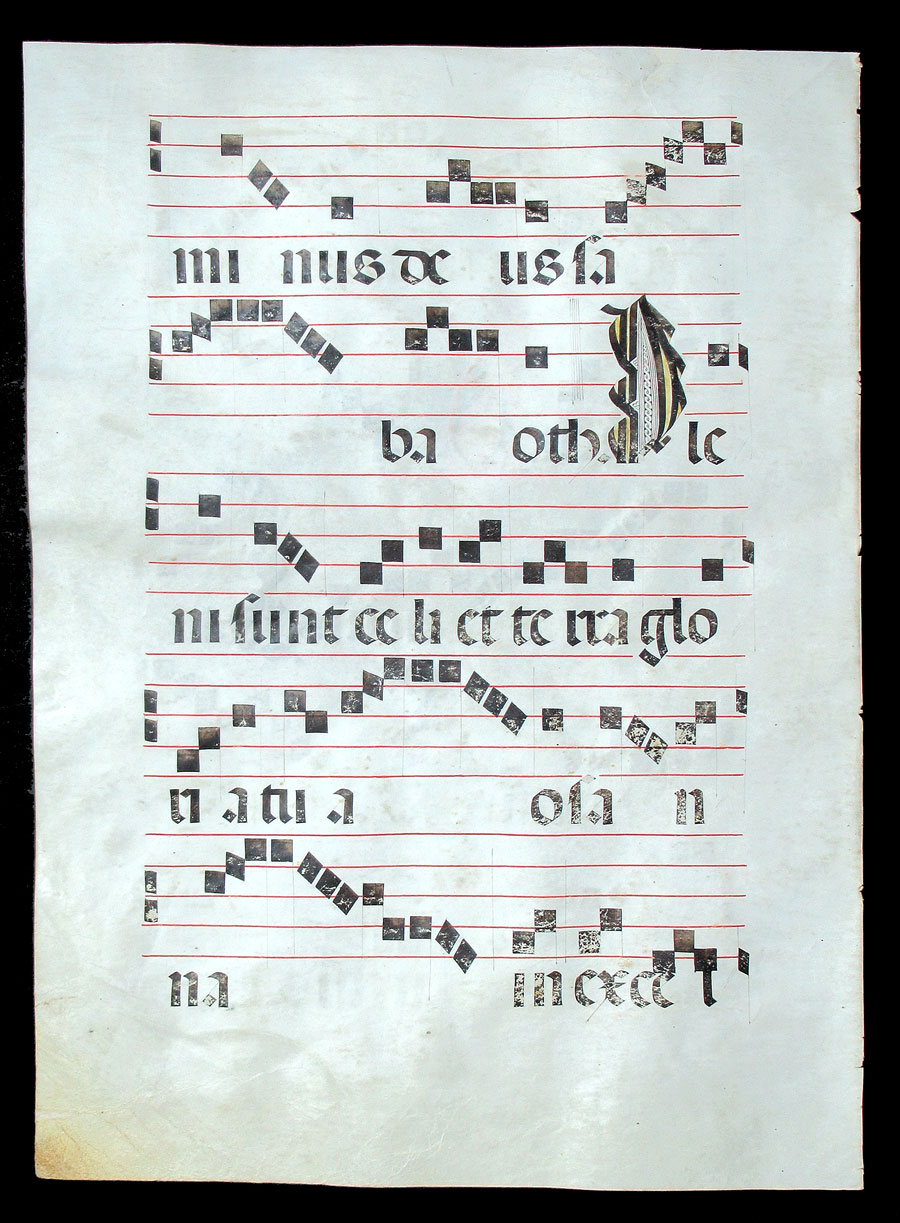 mi nus de us sa
ba oth. P le
ni sunt ce li et te rra glo
ri a tu a o sa n
na. in exce l